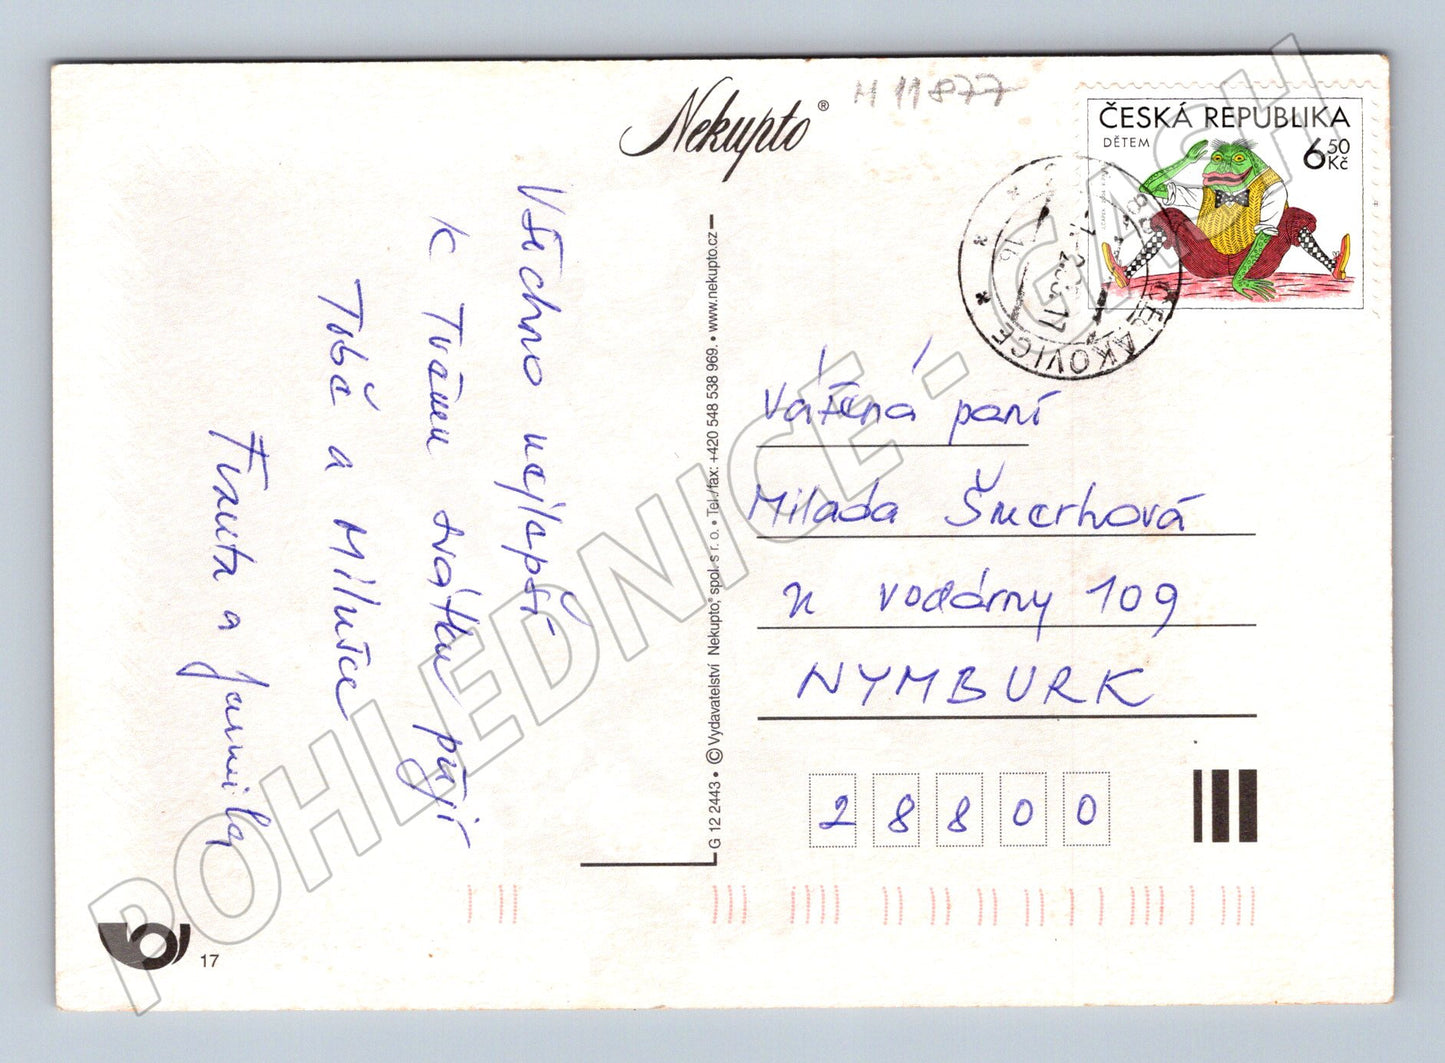 Nekupto®
H 11877
ČESKÁ REPUBLIKA
DĚTEM
6 50 Kč
ČELÁKOVICE
Všechno nejlepší
k Tvému svátku přejí
Tobě a Milušce
Franta a Jarmila
G 12 2443 • © Vydavatelství Nekupto® spol. s r. o. • Tel./fax: +420 548 538 969. • www.nekupto.cz
Vážená paní
Milada Šmerhová
u vodárny 109
NYMBURK
28800
17
POHLEDNICE - GASH